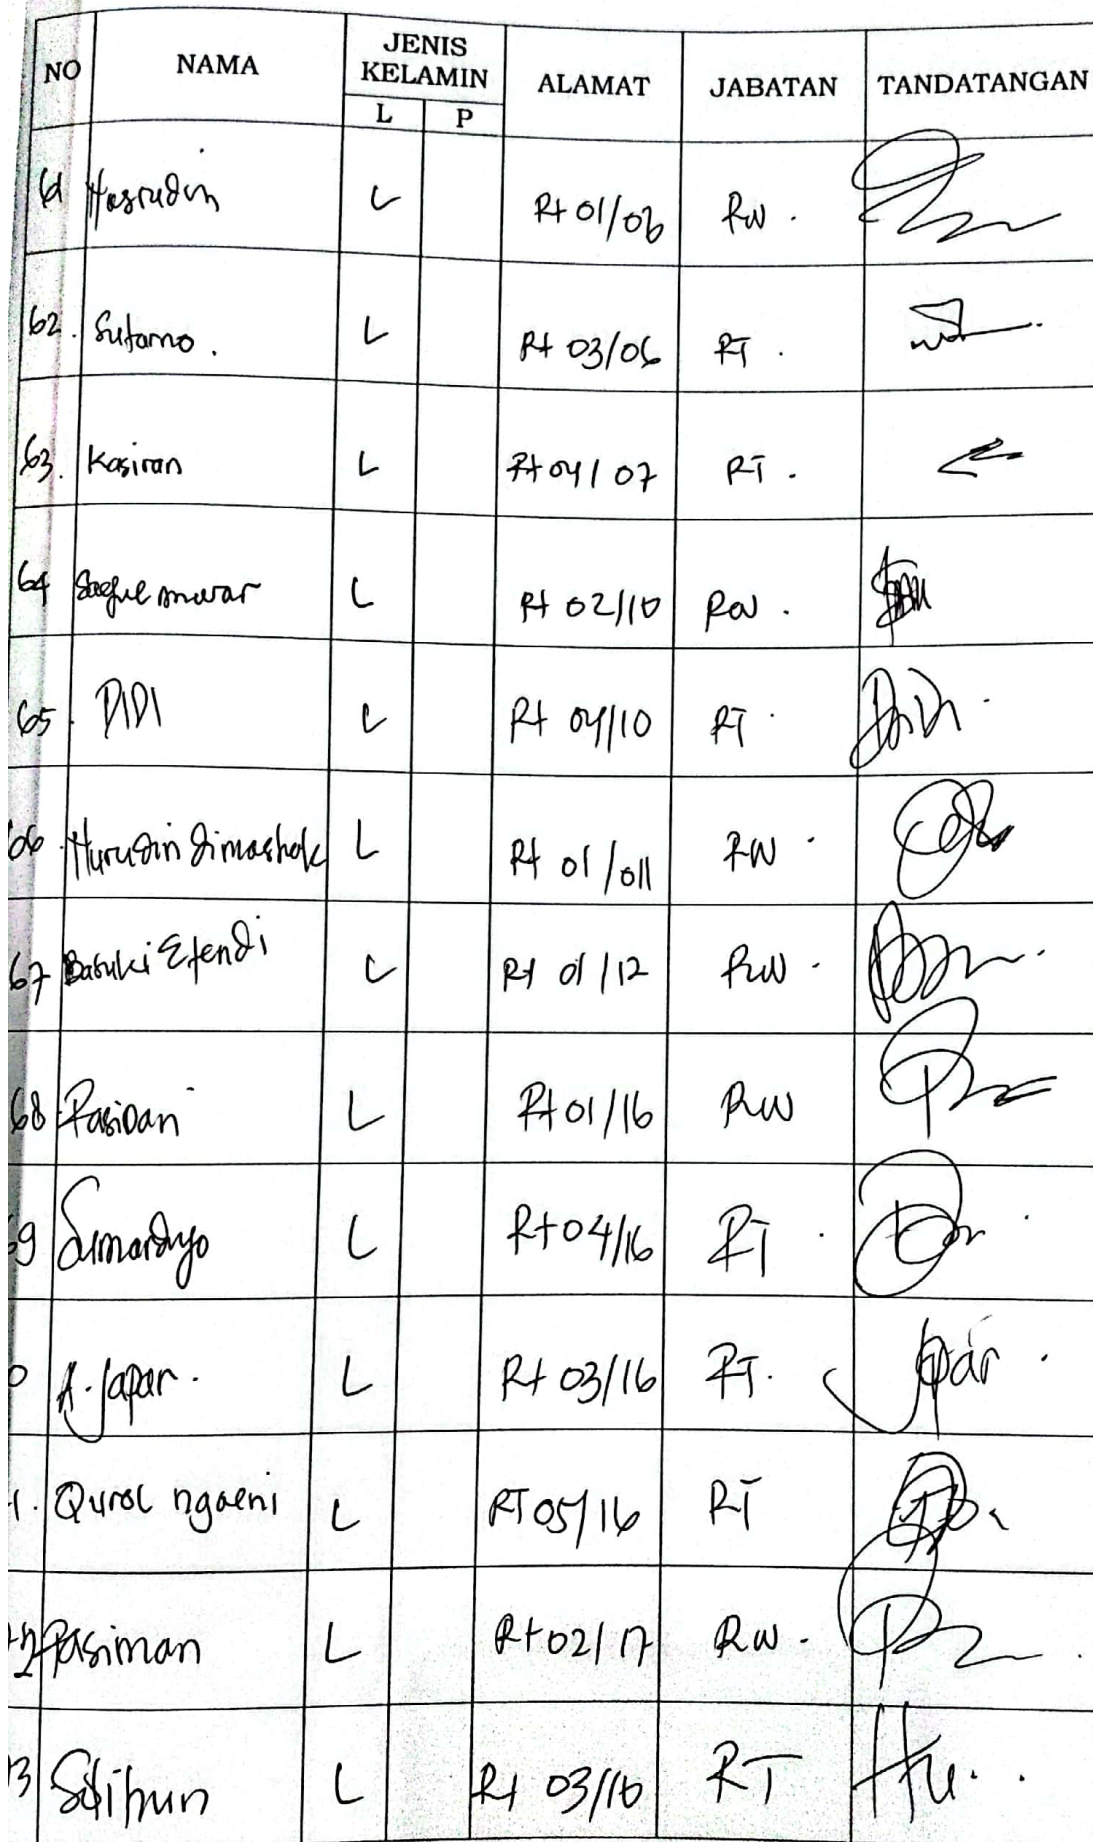 NO NAMA JENIS KELAMIN ALAMAT JABATAN TANDATANGAN
L P
61 Hasrudin L Rt 01/06 RW .
62. Sutarno . L Rt 03/06 RT .
63. Kasiran L Rt 04/07 RT .
64 Saeful anwar L Rt 02/10 RW .
65 . DIDI L Rt 04/10 RT .
66 Nurudin Dimashok L Rt 01/011 RW .
67 Basuki Efendi L Rt 01/12 RW .
68 Rasidan L Rt 01/16 RW
9 Sumardyo L Rt 04/16 RT .
0 A. Japar . L Rt 03/16 RT. Japar .
1. Qurol ngaeni L RT 05/16 RT
72 Pasiman L Rt 02/17 RW .
3 L Rt 03/10 RT